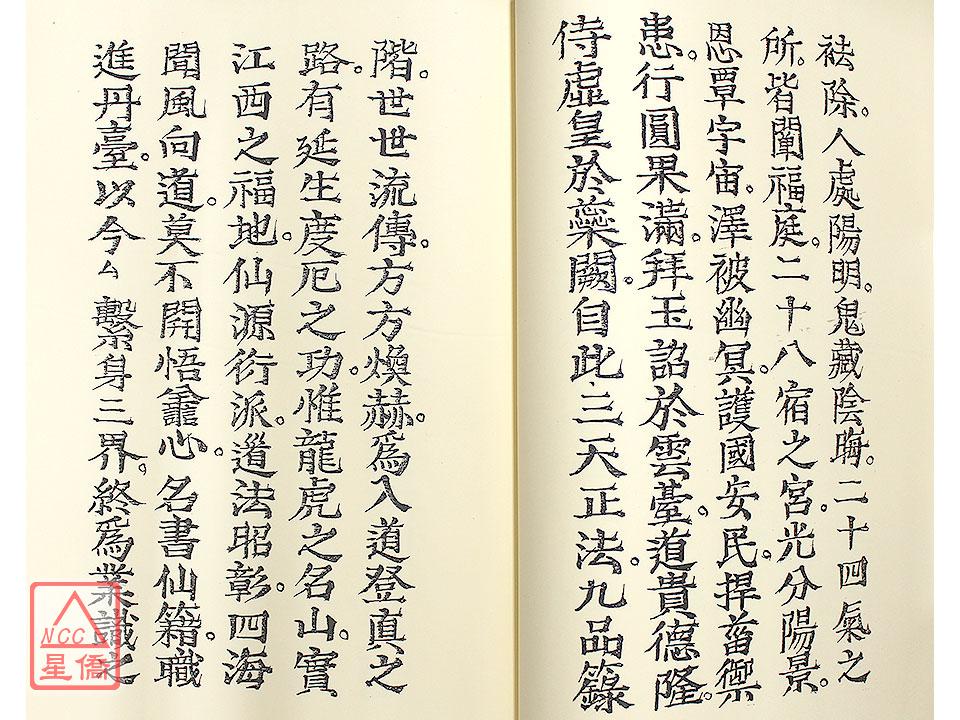 祛除。人處陽明。鬼藏陰晦。二十四氣之
所。皆闡福庭。二十八宿之宮。光分陽景。
恩覃宇宙。澤被幽冥。護國安民。捍菑禦
患。行圓果滿。拜玉詔於雲臺。道貴德隆。
侍虛皇於蘂闕。自此三天正法。九品籙
階。世世流傳。方方煥赫。爲入道登真之
路。有延生度厄之功。惟龍虎之名山。實
江西之福地。仙源衍派。道法昭彰。四海
聞風向道。莫不開悟心。名書仙籍。職
進丹臺。以今厶繫身三界。終爲業識之
NCC
星僑